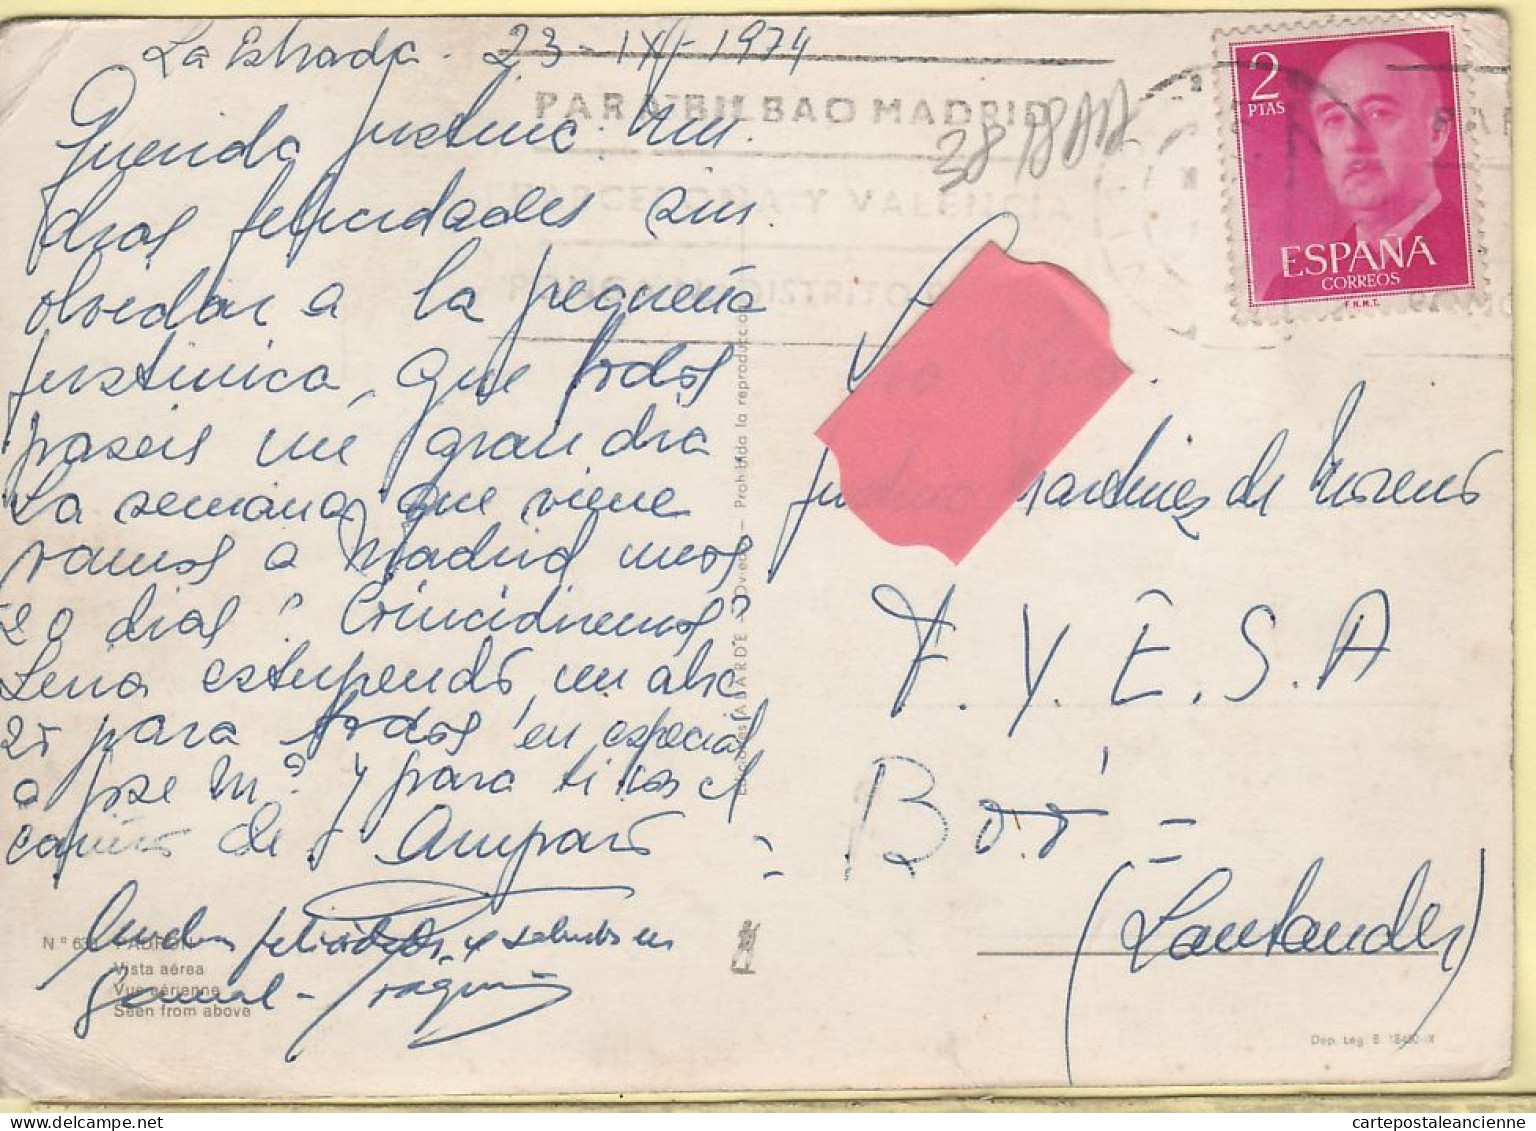 La Estrada. 23-IX-1974
Querida Justina: Mil
dias felicidades sin
olvidar a la pequeña
Justinica, que todos
paseis un gran dia
La semana que viene
vamos a Madrid unos
20 dias ¿ Coincidiremos
Seria estupendo, un abra
zo para todos, en especial
a Jose Mª y para ti los el
cariño de Amparo
felicidades y saludos en
general - Joaquin
Nº 63 PADRON
Vista aérea
Vue aérienne
Seen from above
PARA BILBAO MADRID
BARCELONA Y VALENCIA
PONGA DISTRITO
Prohibida la reproducción
Oviedo
2
PTAS
ESPAÑA
CORREOS
F.N.M.T.
Martinez de Moreno
F.Y.E.S.A
Boó =
(Santander)
Dep. Leg. B. IX
cartepostaleancienne.com